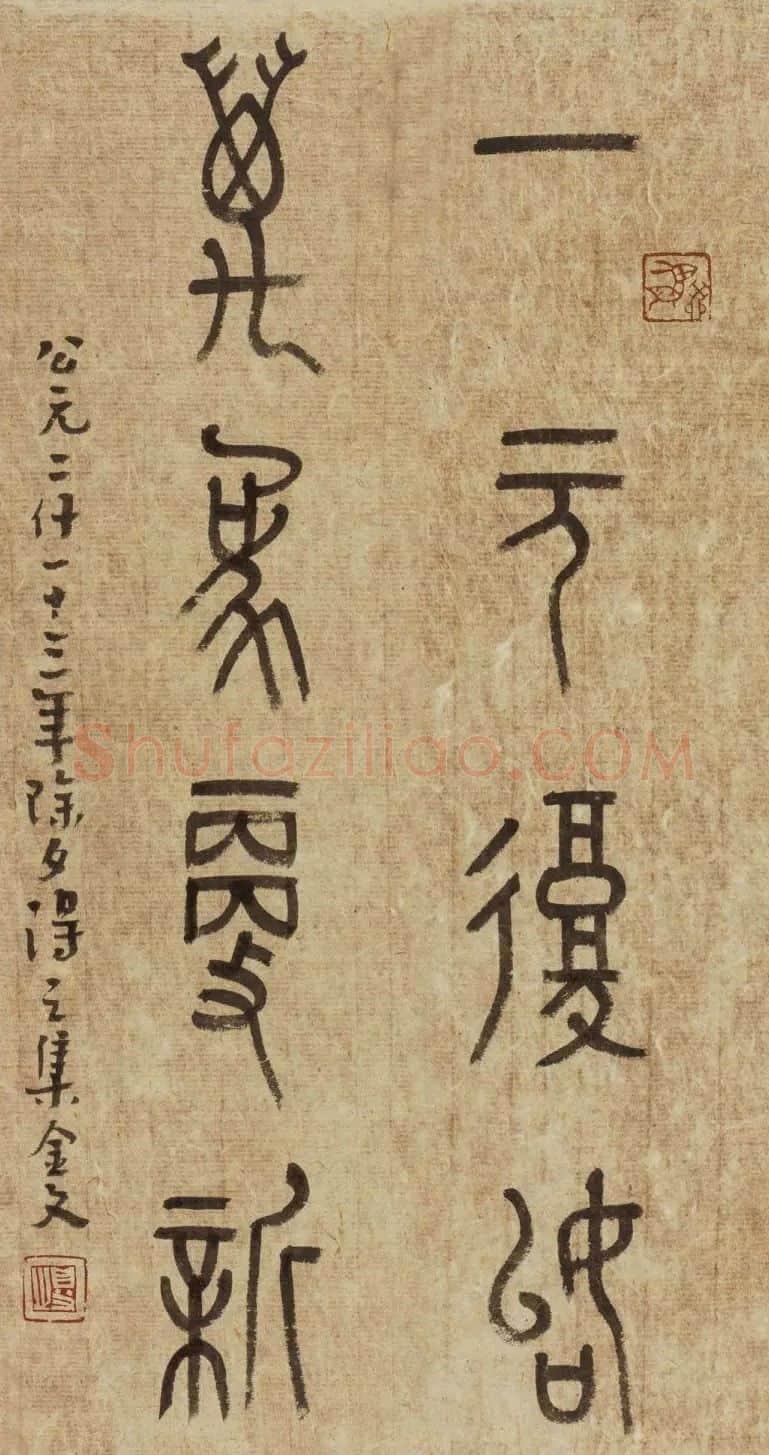 一元復始
萬象更新
公元二仟一十三年除夕得之集金文
Shufaziliao.COM